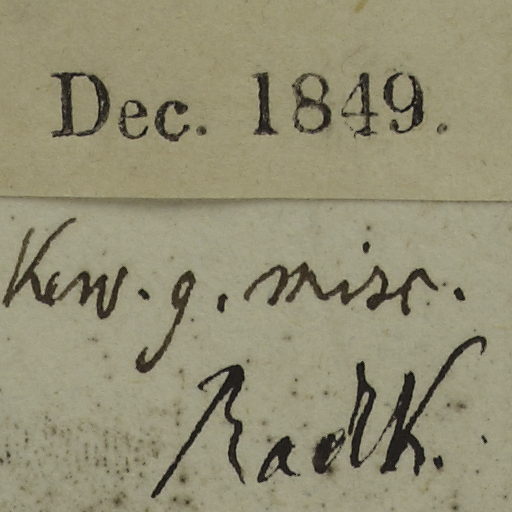 Dec. 1849.
Kew. g. misc.
Radlk.